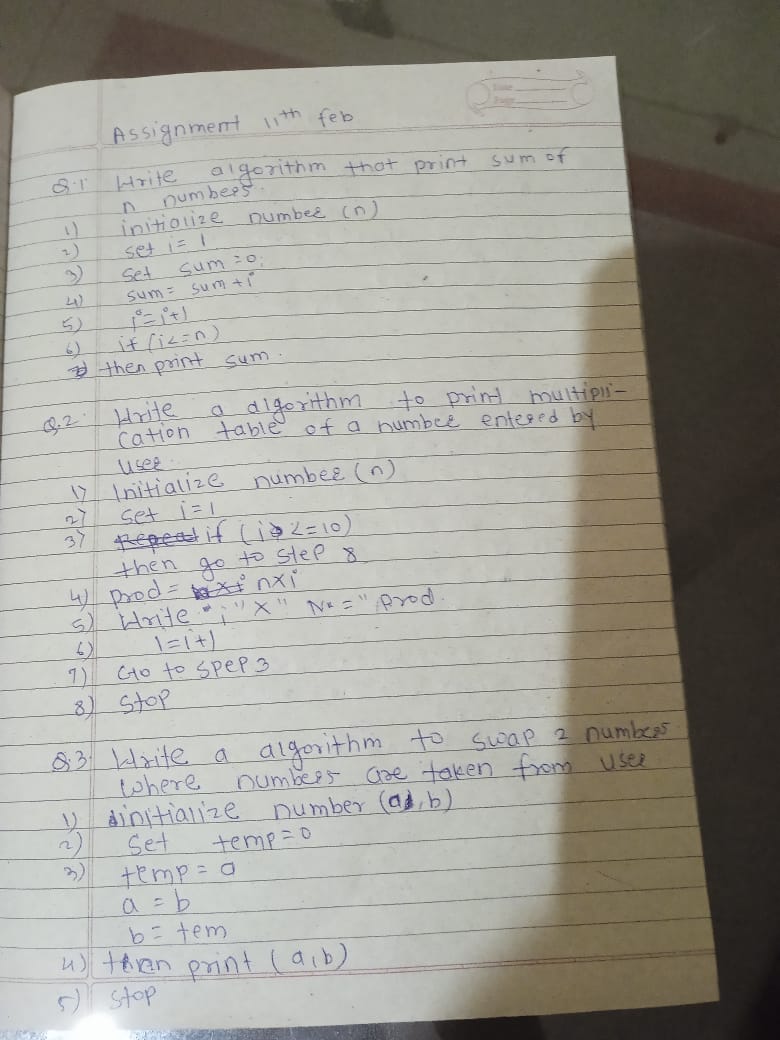 Date
Page
Assignment 11th feb
Q.1 Write algorithm that print sum of
n numbers.
1) initialize number (n)
2) set i = 1
3) set sum = 0;
4) sum = sum + i
5) i = i+1
6) if (i<=n)
then print sum.
Q.2. Write a algorithm to print multipli-
cation table of a number entered by
user.
1) Initialize number (n)
2) Set i = 1
3) Repeat if (i <=10)
then go to step 8
4) prod = n x i
5) Write " i " x " N = " prod.
6) i = i+1
7) Go to spep 3
8) Stop
Q.3 Write a algorithm to swap 2 numbers
where numbers are taken from user
1) initialize number (a, b)
2) Set temp = 0
3) temp = a
a = b
b = tem
4) then print (a, b)
5) Stop